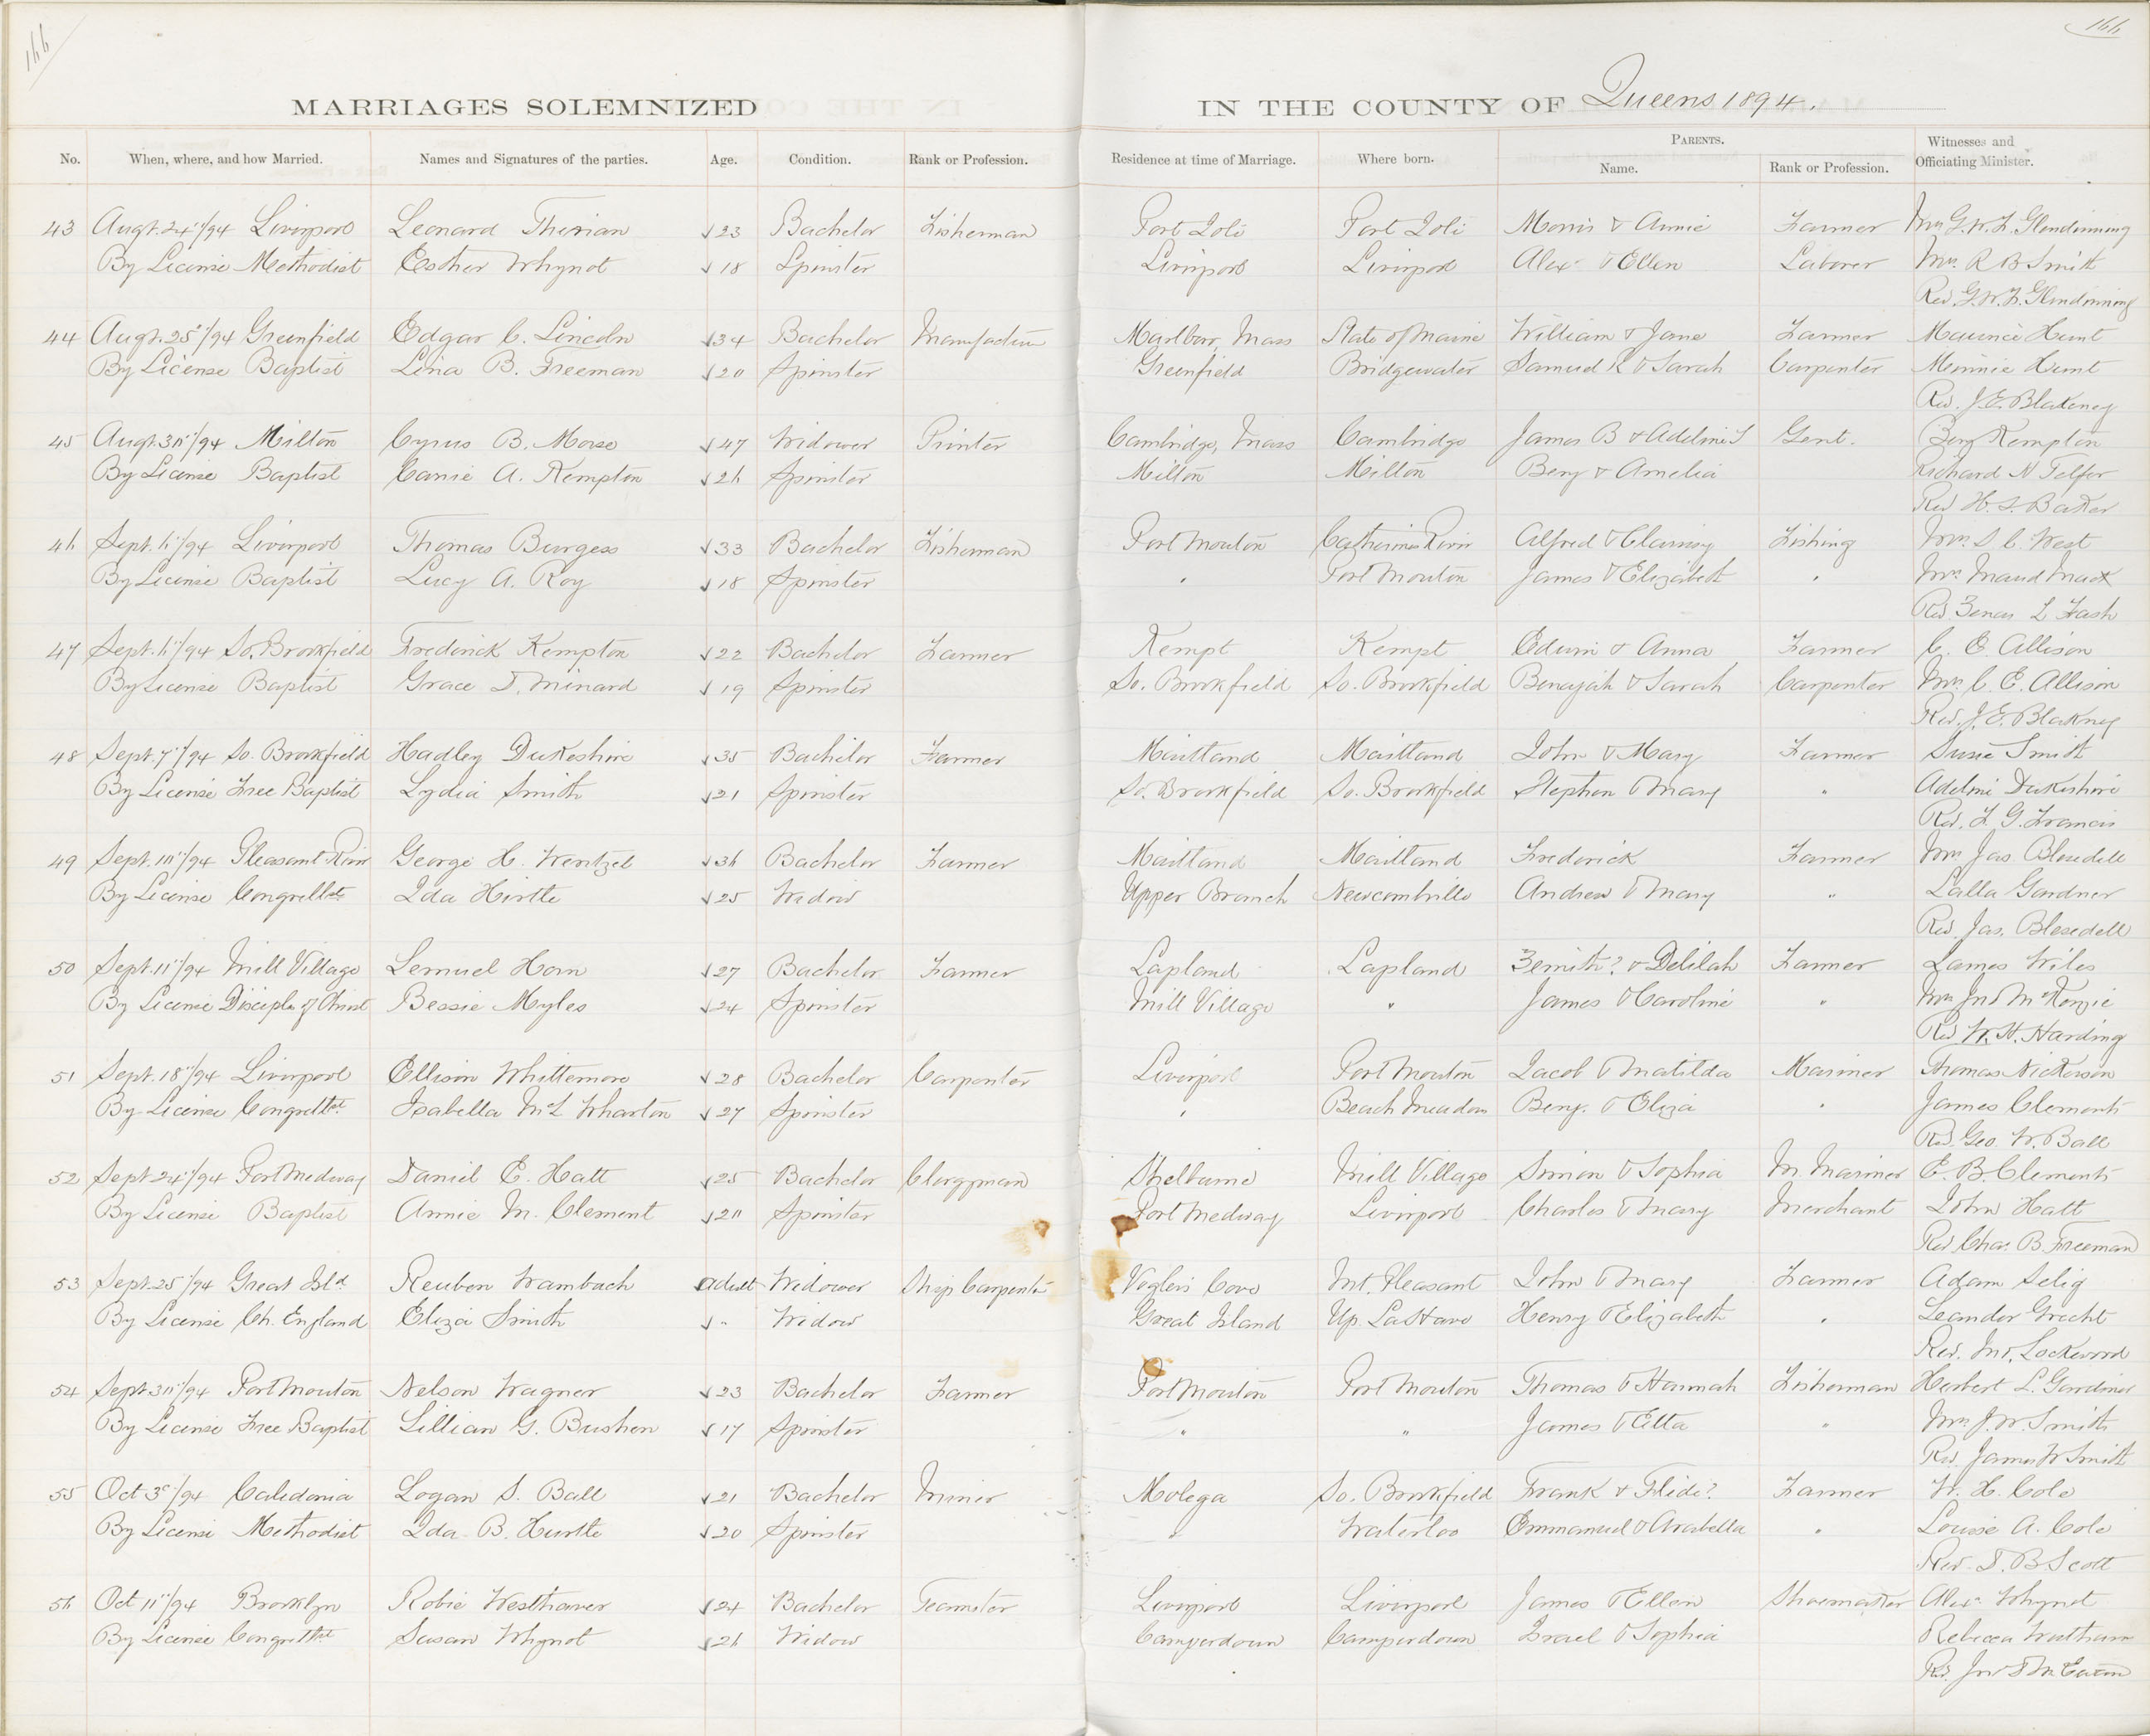 166
166
MARRIAGES SOLEMNIZED IN THE COUNTY OF Queens 1894.
No. When, where, and how Married. Names and Signatures of the parties. Age. Condition. Rank or Profession. Residence at time of Marriage. Where born. PARENTS. Name. Rank or Profession. Witnesses and Officiating Minister.
43 Augt. 24"/94 Liverpool Leonard Therian 23 Bachelor Fisherman Port Joli Port Joli Morris & Annie Farmer Mrs G. W. F. Glendinning
By License Methodist Esther Whynot 18 Spinster Liverpool Liverpool Alexr & Ellen Laborer Mrs. R B Smith
Rev. G. W. F. Glendinning
44 Augt. 25"/94 Greenfield Edgar C. Lincoln 34 Bachelor Manufacturer Marlboro, Mass State of Maine William & Jane Farmer Maurice Hunt
By License Baptist Lina B. Freeman 20 Spinster Greenfield Bridgewater Samuel R & Sarah Carpenter Minnie Hunt
Rev. J. E. Blakeney
45 Augt. 30"/94 Milton Cyrus B. Morse 47 Widower Printer Cambridge, Mass Cambridge James B & Adeline S Gent. Benj Kempton
By License Baptist Carrie A. Kempton 26 Spinster Milton Milton Benj & Amelia Richard N Telfer
Rev H. S. Baker
46 Sept. 6"/94 Liverpool Thomas Burgess 33 Bachelor Fisherman Port Mouton Catherines River Alfred & Fishing Mrs. S. C. West
By License Baptist Lucy A. Roy 18 Spinster " Port Mouton James & Elizabeth " Mrs Maud Mack
Rev. Zenas L Fash
47 Sept. 6"/94 So. Brookfield Frederick Kempton 22 Bachelor Farmer Kempt Kempt Edwin & Anna Farmer C. E. Allison
By License Baptist Grace D. Minard 19 Spinster So. Brookfield So. Brookfield Benajah & Sarah Carpenter Mrs. C. E. Allison
Rev. J. E. Blakney
48 Sept. 7"/94 So. Brookfield Hadley Dukeshire 35 Bachelor Farmer Maitland Maitland John & Mary Farmer Susie Smith
By License Free Baptist Lydia Smith 21 Spinster So. Brookfield So. Brookfield Stephen & Mary " Adelmi Dukeshire
Rev. F. G. Francis
49 Sept. 10"/94 Pleasant River George H. Wentzel 36 Bachelor Farmer Maitland Maitland Frederick Farmer Mrs Jas. Blesedell
By License Congretlst Ida Hirtle 25 Widow Upper Branch Newcombville Andrew & Mary " Lalla Gardner
Rev. Jas. Blesedell
50 Sept. 11"/94 Mill Village Lemuel Horn 27 Bachelor Farmer Lapland Lapland Zemith? & Delilah Farmer James Wiles
By License Disciples of Christ Bessie Myles 24 Spinster Mill Village " James & Caroline " Mrs Jno McKenzie
Rev W. H. Harding
51 Sept. 18"/94 Liverpool Ellison Whittemore 28 Bachelor Carpenter Liverpool Port Mouton Jacob & Matilda Mariner Thomas Nickerson
By License Congretlst Isabella McL Wharton 27 Spinster " Beach Meadows Benj. & Eliza " James Clements
Rev. Geo. W. Ball
52 Sept 24"/94 Port Medway Daniel E. Hatt 25 Bachelor Clergyman Shelburne Mill Village Simion & Sophia M. Mariner E. B. Clements
By License Baptist Annie M. Clement 20 Spinster Port Medway Liverpool Charles & Mary Merchant John Hatt
Rev Chas. B. Freeman
53 Sept. 25"/94 Great Isld. Reuben Wambach adult Widower Ship Carpenter Voglers Cove Mt. Pleasant John & Mary Farmer Adam Selig
By License Ch. England Eliza Smith " Widow Great Island Up. LaHave Henry & Elizabeth " Leander Grecht
Rev. Jno. Lockwood
54 Sept 30"/94 Port Mouton Nelson Wagner 23 Bachelor Farmer Port Mouton Port Mouton Thomas & Hannah Fisherman Herbert L. Gardiner
By License Free Baptist Lillian G. Bushen 17 Spinster " " James & Etta " Mrs J. W. Smith
Rev. James W Smith
55 Oct 3"/94 Caledonia Logan S. Ball 21 Bachelor Miner Molega So. Brookfield Frank & Flide? Farmer W. H. Cole
By License Methodist Ida B. Hurtle 20 Spinster " Waterloo Emmanuel & Arabella " Louise A. Cole
Rev. D. B Scott
56 Oct 11"/94 Brooklyn Robie Westhaver 24 Bachelor Teamster Liverpool Liverpool James & Ellen Shoemaker Alexr. Whynot
By License Congretlst Susan Whynot 26 Widow Camperdown Camperdown Israel & Sophia Rebecca Westhaver
Rev.